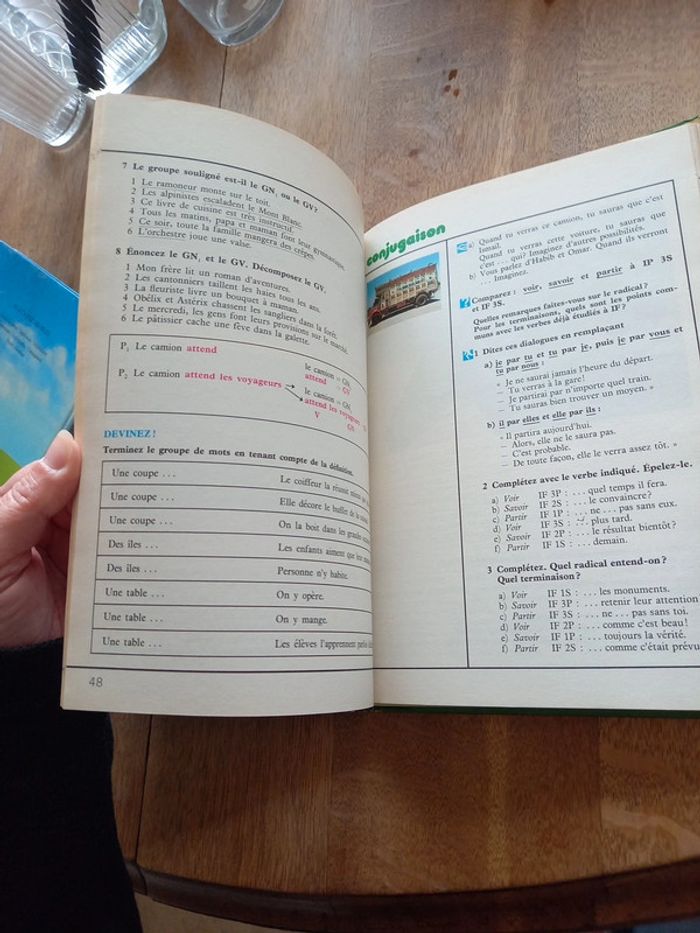 7 Le groupe souligné est-il le GN₁ ou le GV?
1 Le ramoneur monte sur le toit.
2 Les alpinistes escaladent le Mont Blanc.
3 Ce livre de cuisine est très instructif.
4 Tous les matins, papa et maman font leur gymnastique.
5 Ce soir, toute la famille mangera des crêpes.
6 L'orchestre joue une valse.
8 Énoncez le GN₁ et le GV. Décomposez le GV.
1 Mon frère lit un roman d'aventures.
2 Les cantonniers taillent les haies tous les ans.
3 La fleuriste livre un bouquet à maman.
4 Obélix et Astérix chassent les sangliers dans la forêt.
5 Le mercredi, les gens font leurs provisions sur le marché.
6 Le pâtissier cache une fève dans la galette.
P₁ Le camion attend
le camion = GN₁
attend = GV
P₂ Le camion attend les voyageurs
le camion = GN₁
attend les voyageurs
V GN
DEVINEZ!
Terminez le groupe de mots en tenant compte de la définition.
Une coupe ... Le coiffeur la réussit mieux
Une coupe ... Elle décore le buffet de la
Une coupe ... On la boit dans les grandes
Des îles ... Les enfants aiment que leur
Des îles ... Personne n'y habite.
Une table ... On y opère.
Une table ... On y mange.
Une table ... Les élèves l'apprennent
48
conjugaison
a) Quand tu verras ce camion, tu sauras que c'est
Ismail.
Quand tu verras cette voiture, tu sauras que
c'est ... qui? Imaginez d'autres possibilités.
b) Vous parlez d'Habib et Omar. Quand ils verront
... Imaginez.
? Comparez : voir, savoir et partir à IP 3S
et IF 3S.
Quelles remarques faites-vous sur le radical?
Pour les terminaisons, quels sont les points com-
muns avec les verbes déjà étudiés à IF?
1 Dites ces dialogues en remplaçant
a) je par tu et tu par je, puis je par vous et
tu par nous :
« Je ne saurai jamais l'heure du départ.
— Tu verras à la gare!
— Je partirai par n'importe quel train.
— Tu sauras bien trouver un moyen. »
b) il par elles et elle par ils :
« Il partira aujourd'hui.
— Alors, elle ne le saura pas.
— C'est probable.
— De toute façon, elle le verra assez tôt. »
2 Complétez avec le verbe indiqué. Épelez-le.
a) Voir IF 3P : ... quel temps il fera.
b) Savoir IF 2S : ... le convaincre?
c) Partir IF 1P : ... ne ... pas sans eux.
d) Voir IF 3S : ... plus tard.
e) Savoir IF 2P : ... le résultat bientôt?
f) Partir IF 1S : ... demain.
3 Complétez. Quel radical entend-on?
Quel terminaison?
a) Voir IF 1S : ... les monuments.
b) Savoir IF 3P : ... retenir leur attention
c) Partir IF 3S : ... ne ... pas sans toi.
d) Voir IF 2P : ... comme c'est beau!
e) Savoir IF 1P : ... toujours la vérité.
f) Partir IF 2S : ... comme c'était prévu